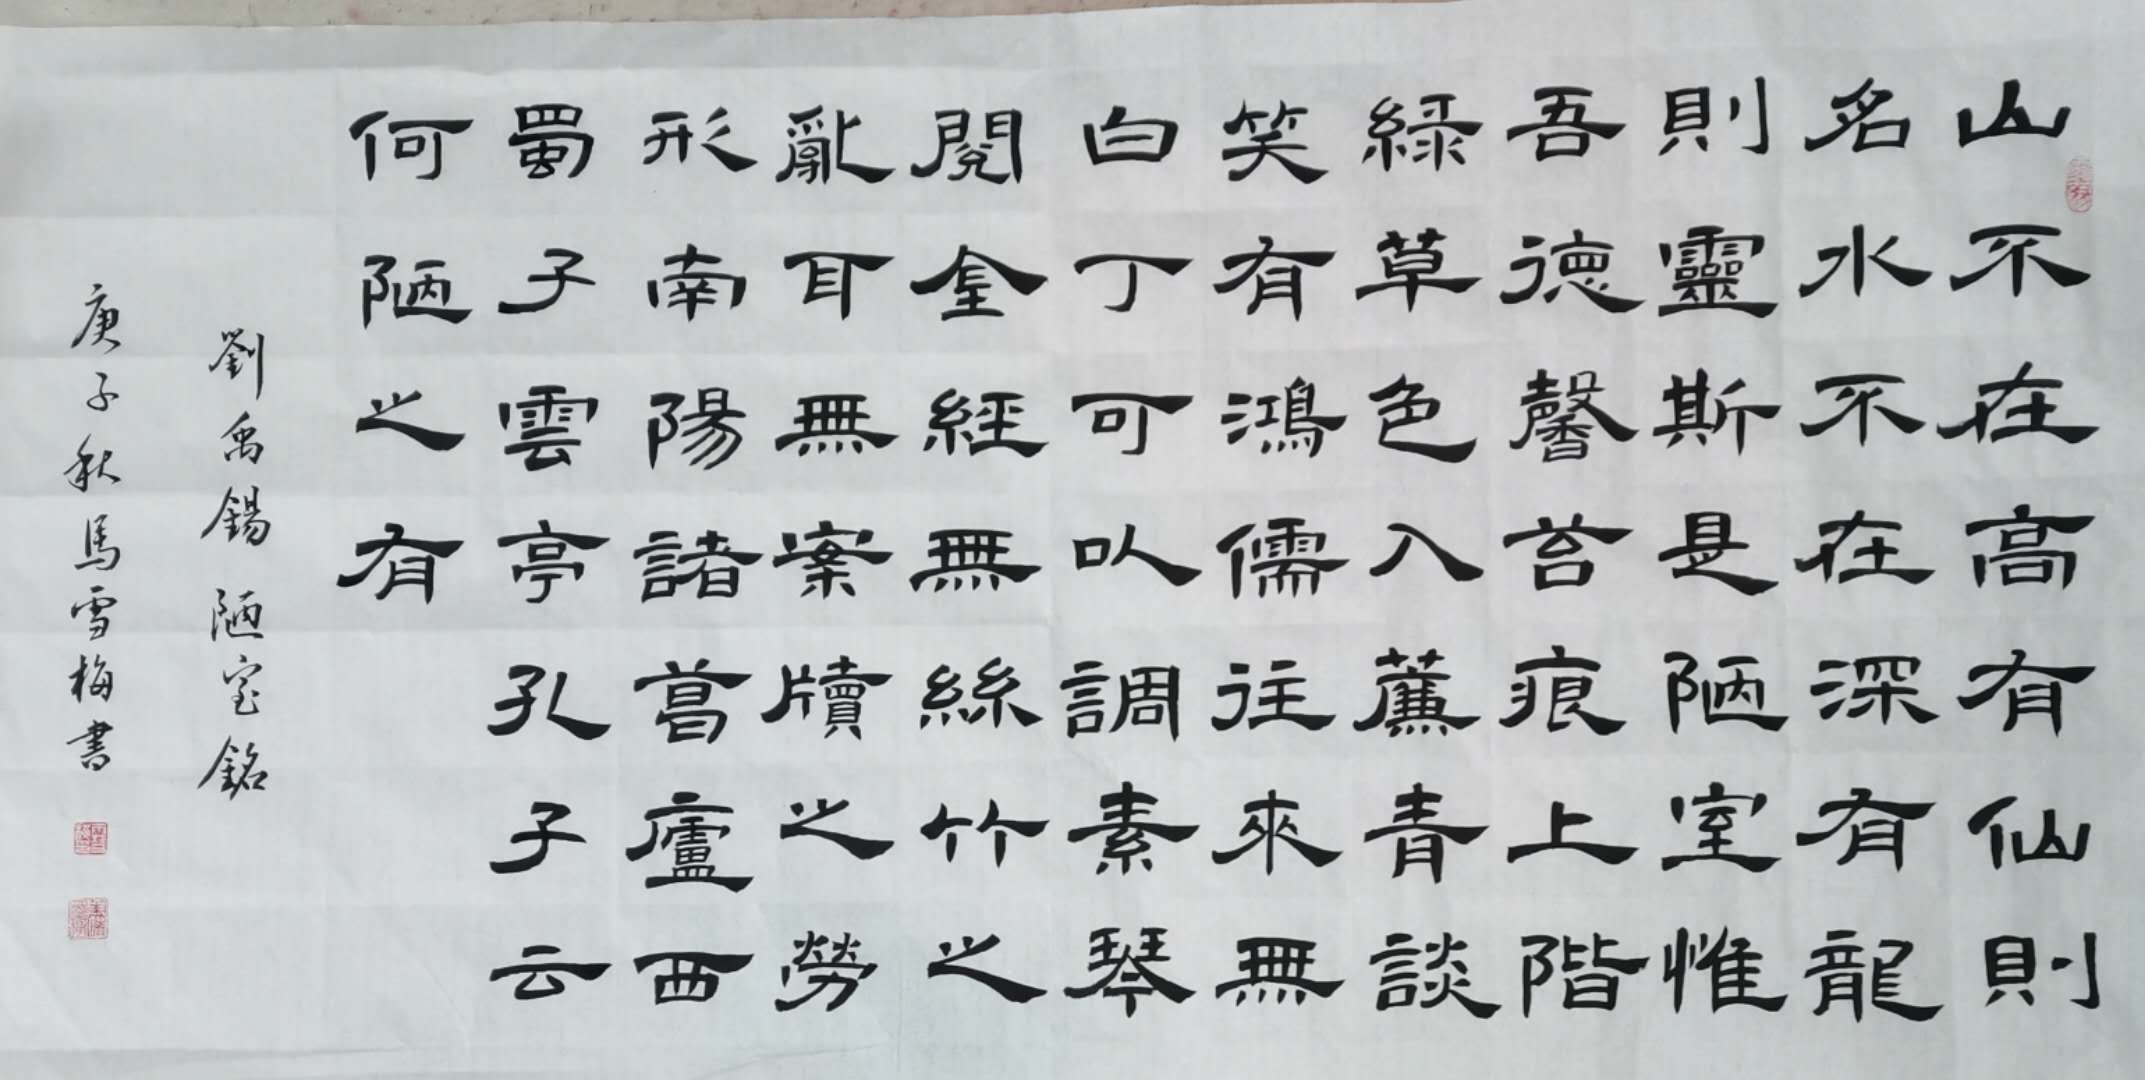 山不在高有仙則
名水不在深有龍
則靈斯是陋室惟
吾德馨苔痕上階
綠草色入簾青談
笑有鴻儒往來無
白丁可以調素琴
閱金經無絲竹之
亂耳無案牘之勞
形南陽諸葛廬西
蜀子雲亭孔子云
何陋之有
劉禹錫陋室銘
庚子秋馬雪梅書